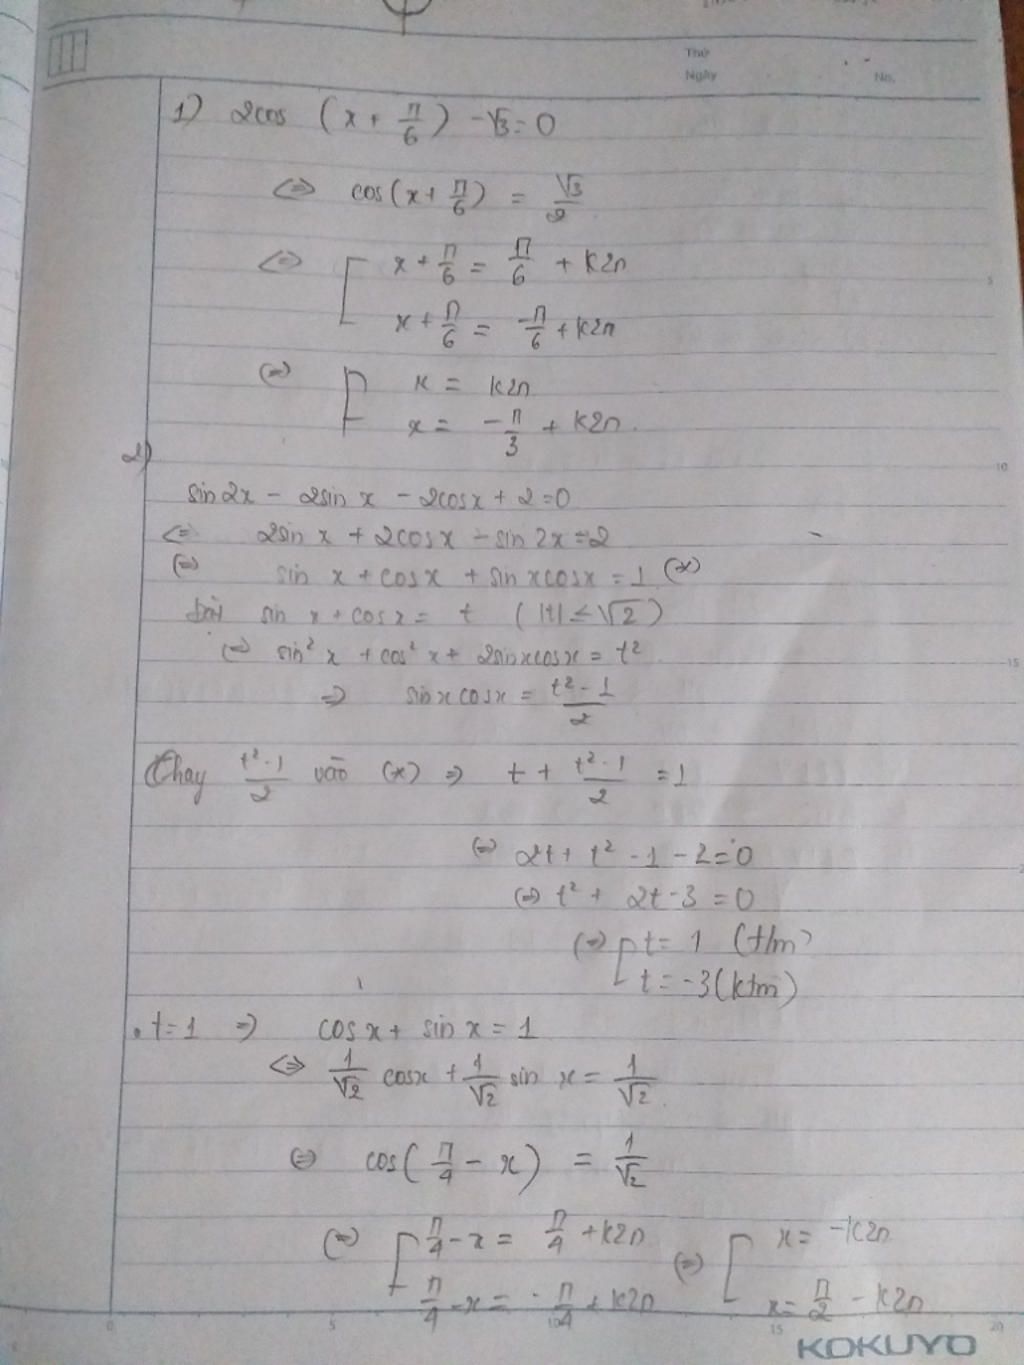 Thứ
Ngày No.
1) 2cos (x + π/6) - √3 = 0
<=> cos(x + π/6) = √3/2
<=> [ x + π/6 = π/6 + k2π
x + π/6 = -π/6 + k2π
<=> [ x = k2π
x = -π/3 + k2π.
2)
sin2x - 2sin x - 2cosx + 2 = 0
<=> 2sin x + 2cosx - sin 2x = 2
<=> sin x + cosx + sin xcosx = 1 (*)
Đặt sin x + cosx = t ( |t| ≤ √2 )
<=> sin² x + cos² x + 2sinxcosx = t²
=> sinxcosx = (t² - 1)/2
Thay (t² - 1)/2 vào (*) => t + (t² - 1)/2 = 1
<=> 2t + t² - 1 - 2 = 0
<=> t² + 2t - 3 = 0
<=> [ t = 1 (t/m)
t = -3 (ktm)
. t = 1 => cosx + sin x = 1
<=> 1/√2 cosx + 1/√2 sin x = 1/√2.
<=> cos( π/4 - x ) = 1/√2
<=> [ π/4 - x = π/4 + k2π <=> [ x = -k2π
π/4 - x = -π/4 + k2π x = π/2 - k2π
KOKUYO